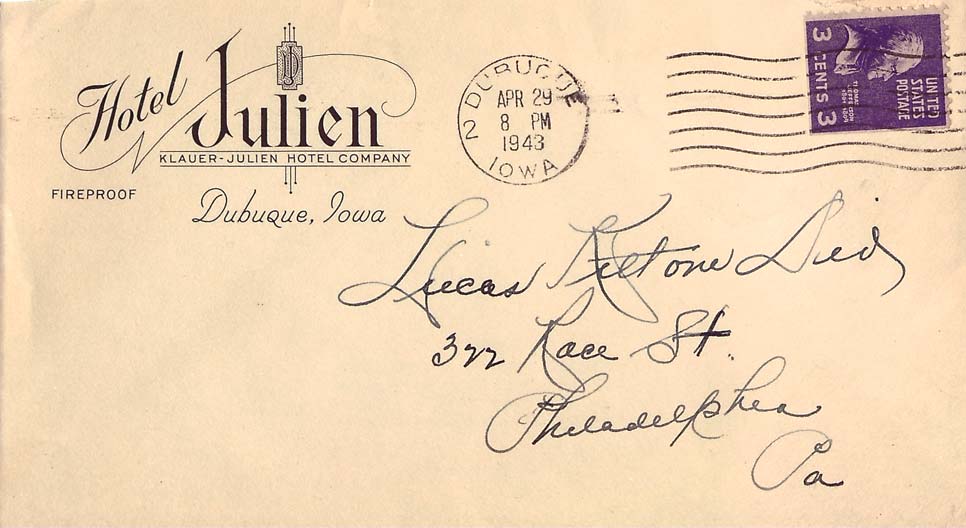 Hotel Julien
JD
KLAUER-JULIEN HOTEL COMPANY
FIREPROOF
Dubuque, Iowa
DUBUQUE
2
APR 29
8 PM
1943
IOWA
UNITED
STATES
POSTAGE
3 CENTS 3
Lucas Kiltone
322 Race St.
Philadelphia
Pa